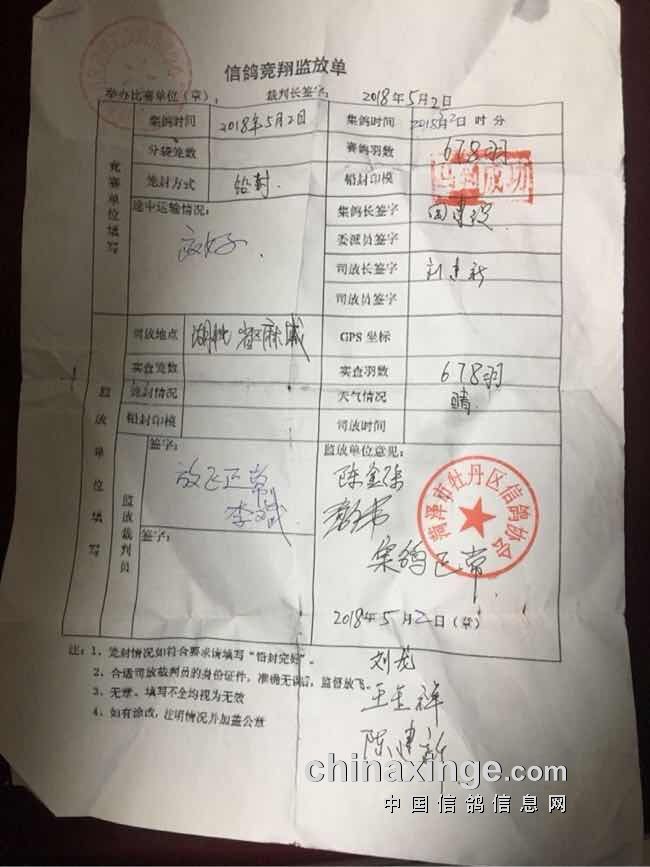 信鸽竞翔监放单
举办比赛单位（章）： 裁判长签字： 2018年5月2日
竞赛单位填写
集鸽时间 2018年5月2日 集鸽时间 2018年5月2日 时 分
分袋笼数 赛鸽羽数 678羽
笼封方式 铅封 铅封印模
途中运输情况： 良好 集鸽长签字
委派员签字
司放长签字 刘建新
司放员签字
监放单位填写
司放地点 湖北省麻城 GPS 坐标
实查笼数 实查羽数 678羽
笼封情况 天气情况 晴
铅封印模 司放时间
监放裁判员
签字： 放飞正常 李斌 监放单位意见：
签字： 集鸽正常
菏泽市牡丹区信鸽协会
2018年5月2日（章）
注：1、笼封情况如符合要求请填写“铅封完好”。
2、合适司放裁判员的身份证件，准确无误，监督放飞。
3、无章、填写不全均视为无效
4、如有涂改，注明情况并加盖公章
刘龙
王金祥
陈建新
chinaxinge.com
中国信鸽信息网